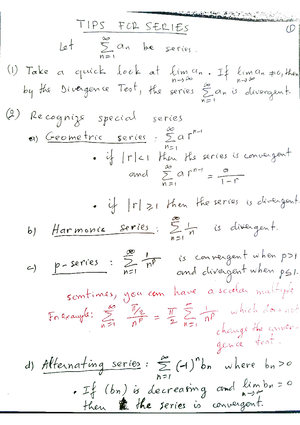 TIPS FOR SERIES ①
Let ∞∑n=1 an be series.
(1) Take a quick look at lim n→∞ an. If lim n→∞ an ≠ 0, then
by the Divergence Test, the series ∞∑n=1 an is divergent.
(2) Recognize special series
a) Geometric series : ∞∑n=1 a r^n-1
• if |r|<1 then the series is convergent
and ∞∑n=1 a r^n-1 = a/1-r
• if |r| ≥ 1 then the series is divergent.
b) Harmonic series : ∞∑n=1 1/n is divergent.
c) p-series : ∞∑n=1 1/n^p is convergent when p>1
and divergent when p≤1.
somtimes, you can have a scalar multiple
For example: ∞∑n=1 π/2/n^p = π/2 ∞∑n=1 1/n^p which does not
change the conver-
gence test.
d) Alternating series : ∞∑n=1 (-1)^n bn where bn>0
• If (bn) is decreasing and lim n→∞ bn = 0
then the series is convergent.